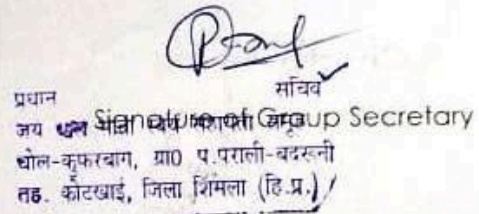 सचिव
प्रधान
Signature of Group Secretary
जय
धोल-कुफरबाग, ग्रा0 प.पराली-बदरूनी
तह. कोटखाई, जिला शिमला (हि.प्र.)